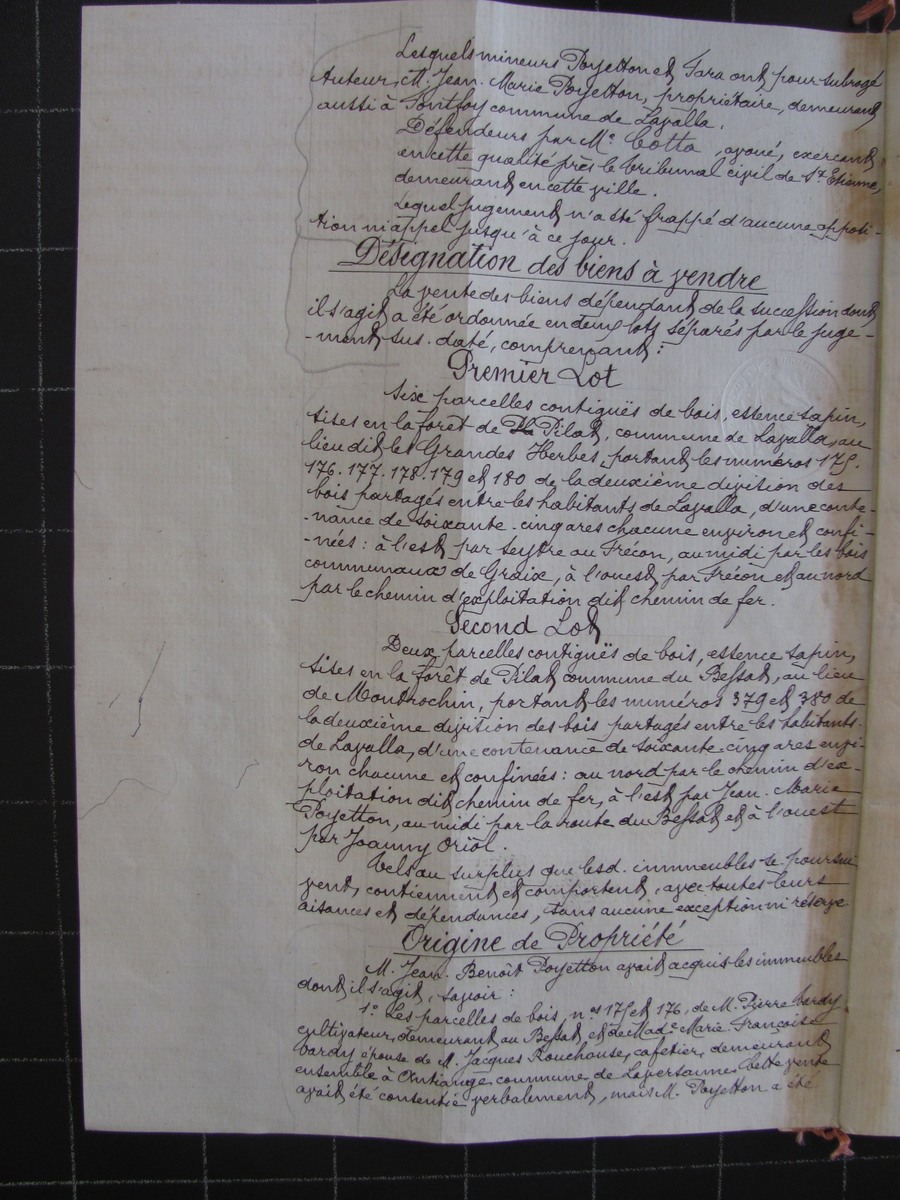 Lesquels mineurs Poyetton et Fara ont pour subrogé
tuteur, M. Jean-Marie Poyetton, propriétaire, demeurant
aussi à Fontfoy commune de Lavalla.
Défendeurs par Me Cotta, avoué, exerçant
en cette qualité près le tribunal civil de St Etienne,
demeurant en cette ville.
Lequel jugement n'a été frappé d'aucune opposi-
tion ni appel jusqu'à ce jour.
Désignation des biens à vendre
La vente des biens dépendant de la succession dont
il s'agit a été ordonnée en deux lots séparés par le juge-
-ment sus-daté, comprenant :
Premier Lot
Six parcelles contiguës de bois, essence sapin,
sises en la forêt de Pilat, commune de Lavalla, au
lieu dit les Grandes Herbes, portant les numéros 175.
176. 177. 178. 179 et 180 de la deuxième division des
bois partagés entre les habitants de Lavalla, d'une conte-
-nance de soixante-cinq ares chacune environ et confi-
-nées : à l'est par Seytre au Frécon, au midi par les bois
communaux de Graix, à l'ouest par Frécon et au nord
par le chemin d'exploitation dit chemin de fer.
Second Lot
Deux parcelles contiguës de bois, essence sapin,
sises en la forêt de Pilat commune du Bessat, au lieu
de Montrochin, portant les numéros 379 et 380 de
la deuxième division des bois partagés entre les habitants
de Lavalla, d'une contenance de soixante-cinq ares envi-
ron chacune et confinées : au nord par le chemin d'ex-
ploitation dit chemin de fer, à l'est par Jean-Marie
Poyetton, au midi par la route du Bessat et à l'ouest
par Joanny Oriol.
Tels au surplus que lesd. immeubles se poursui
vent, contiennent et comportent, avec toutes leurs
aisances et dépendances, sans aucune exception ni réserve.
Origine de Propriété
M. Jean-Benoît Poyetton avait acquis les immeubles
dont il s'agit, savoir :
1° Les parcelles de bois, nos 175 et 176, de M. Pierre Tardy,
cultivateur, demeurant au Bessat et de Made Marie Françoise
Tardy épouse de M. Jacques Rouchouse, cafetier, demeurant
ensemble à commune de Laversanne. Cette vente
avait été consentie verbalement, mais M. Poyetton a été